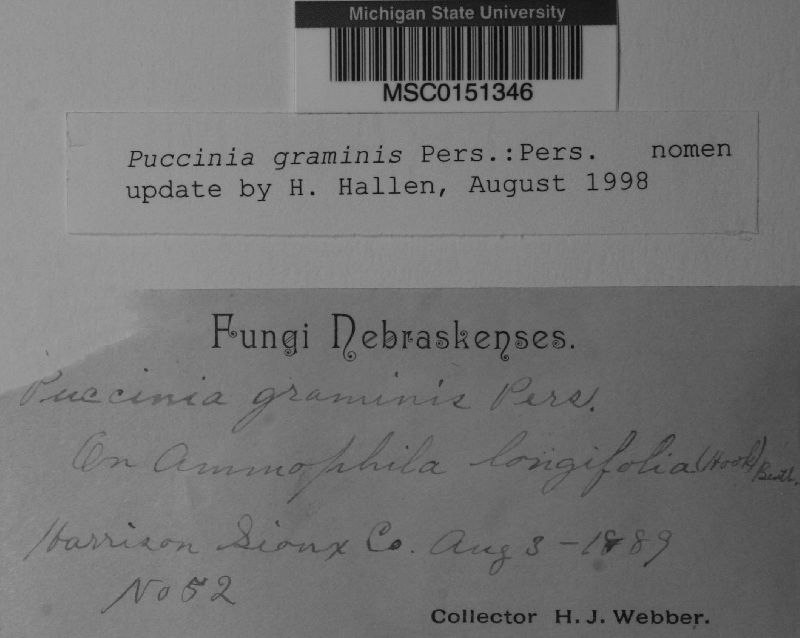 Michigan State University
MSC0151346
Puccinia graminis Pers.:Pers. nomen
update by H. Hallen, August 1998
Fungi Nebraskenses.
Puccinia graminis Pers.
On Ammophila longifolia (Hook) Benth.
Harrison Sioux Co. Aug 3 - 1889
No 52
Collector H. J. Webber.